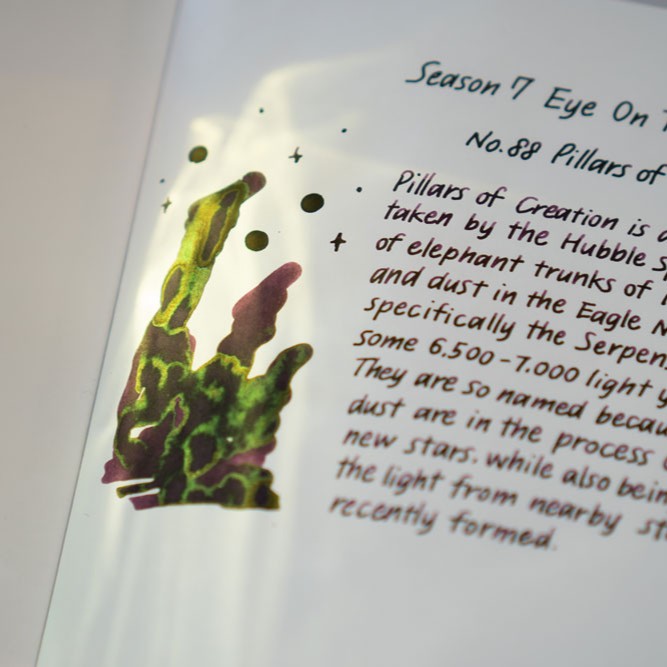 Season 7 Eye On
No.88 Pillars of
Pillars of Creation is
taken by the Hubble
of elephant trunks of
and dust in the Eagle
specifically the
some 6.500-7.000 light
They are so named
dust are in the process
new stars. while also
the light from nearby
recently formed.